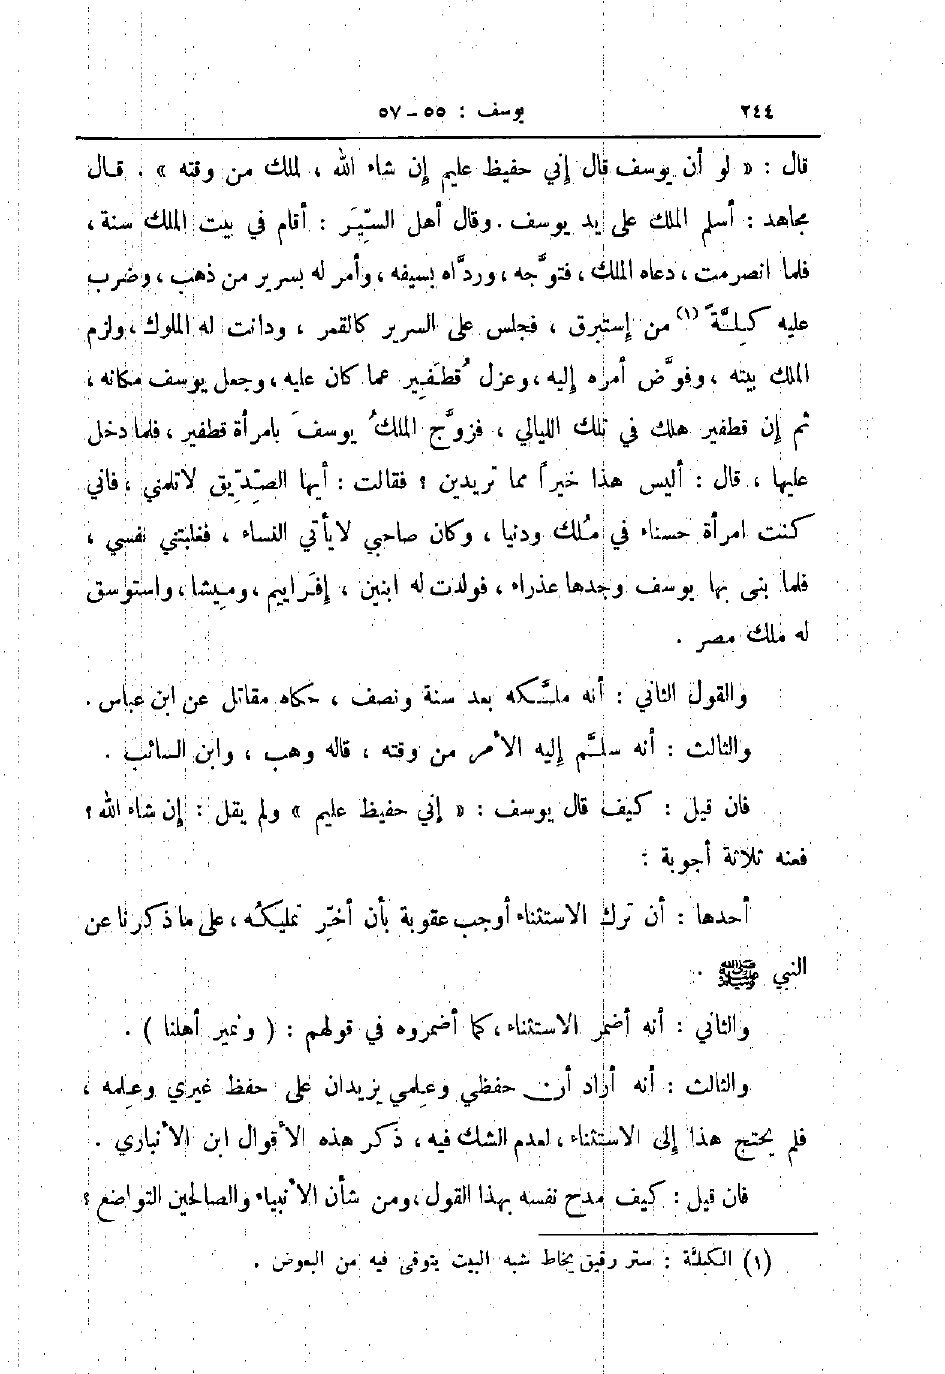 ٢٤٤ يوسف : ٥٥ - ٥٧
قال : « لو أن يوسف قال إني حفيظ عليم إن شاء الله ، لملك من وقته » . قال
مجاهد : أسلم الملك على يد يوسف . وقال أهل السِّيَر : أقام في بيت الملك سنة ،
فلما انصرمت ، دعاه الملك ، فتوَّجه ، وردَّاه بسيفه ، وأمر له بسرير من ذهب ، وضرب
عليه كِلَّةً (١) من إستبرق ، فجلس على السرير كالقمر ، ودانت له الملوك ، ولزم
الملك بيته ، وفوَّض أمره إليه ، وعزل قُطفَير عما كان عليه ، وجعل يوسف مكانه ،
ثم إن قطفير هلك في تلك الليالي ، فزوَّج الملكُ يوسفَ بامرأة قطفير ، فلما دخل
عليها ، قال : أليس هذا خيراً مما تريدين ؟ فقالت : أيها الصِّدِّيق لاتلمني ، فاني
كنت امرأة حسناء في مُلك ودنيا ، وكان صاحبي لايأتي النساء ، فغلبتني نفسي ،
فلما بنى بها يوسف وجدها عذراء ، فولدت له ابنين ، إفَراييم ، وميشا ، واستوسق
له ملك مصر .
والقول الثاني : أنه ملَّكه بعد سنة ونصف ، حكاه مقاتل عن ابن عباس .
والثالث : أنه سلَّم إليه الأمر من وقته ، قاله وهب ، وابن السائب .
فان قيل : كيف قال يوسف : « إني حفيظ عليم » ولم يقل : إن شاء الله ؟
فعنه ثلاثة أجوبة :
أحدها : أن ترك الاستثناء أوجب عقوبة بأن أُخِّر تمليكُه ، على ماذكرنا عن
النبي ﷺ .
والثاني : أنه أضمر الاستثناء ، كما أضمروه في قولهم : ( ونمير أهلنا ) .
والثالث : أنه أراد أن حفظي وعلمي يزيدان على حفظ غيري وعِلمه ،
فلم يحتج هذا إلى الاستثناء ، لعدم الشك فيه ، ذكر هذه الأقوال ابن الأنباري .
فان قيل : كيف مدح نفسه بهذا القول ، ومن شأن الأنبياء والصالحين التواضع ؟
(١) الكِلَّة : ستر رقيق يخاط شبه البيت يتوقى فيه من البعوض .